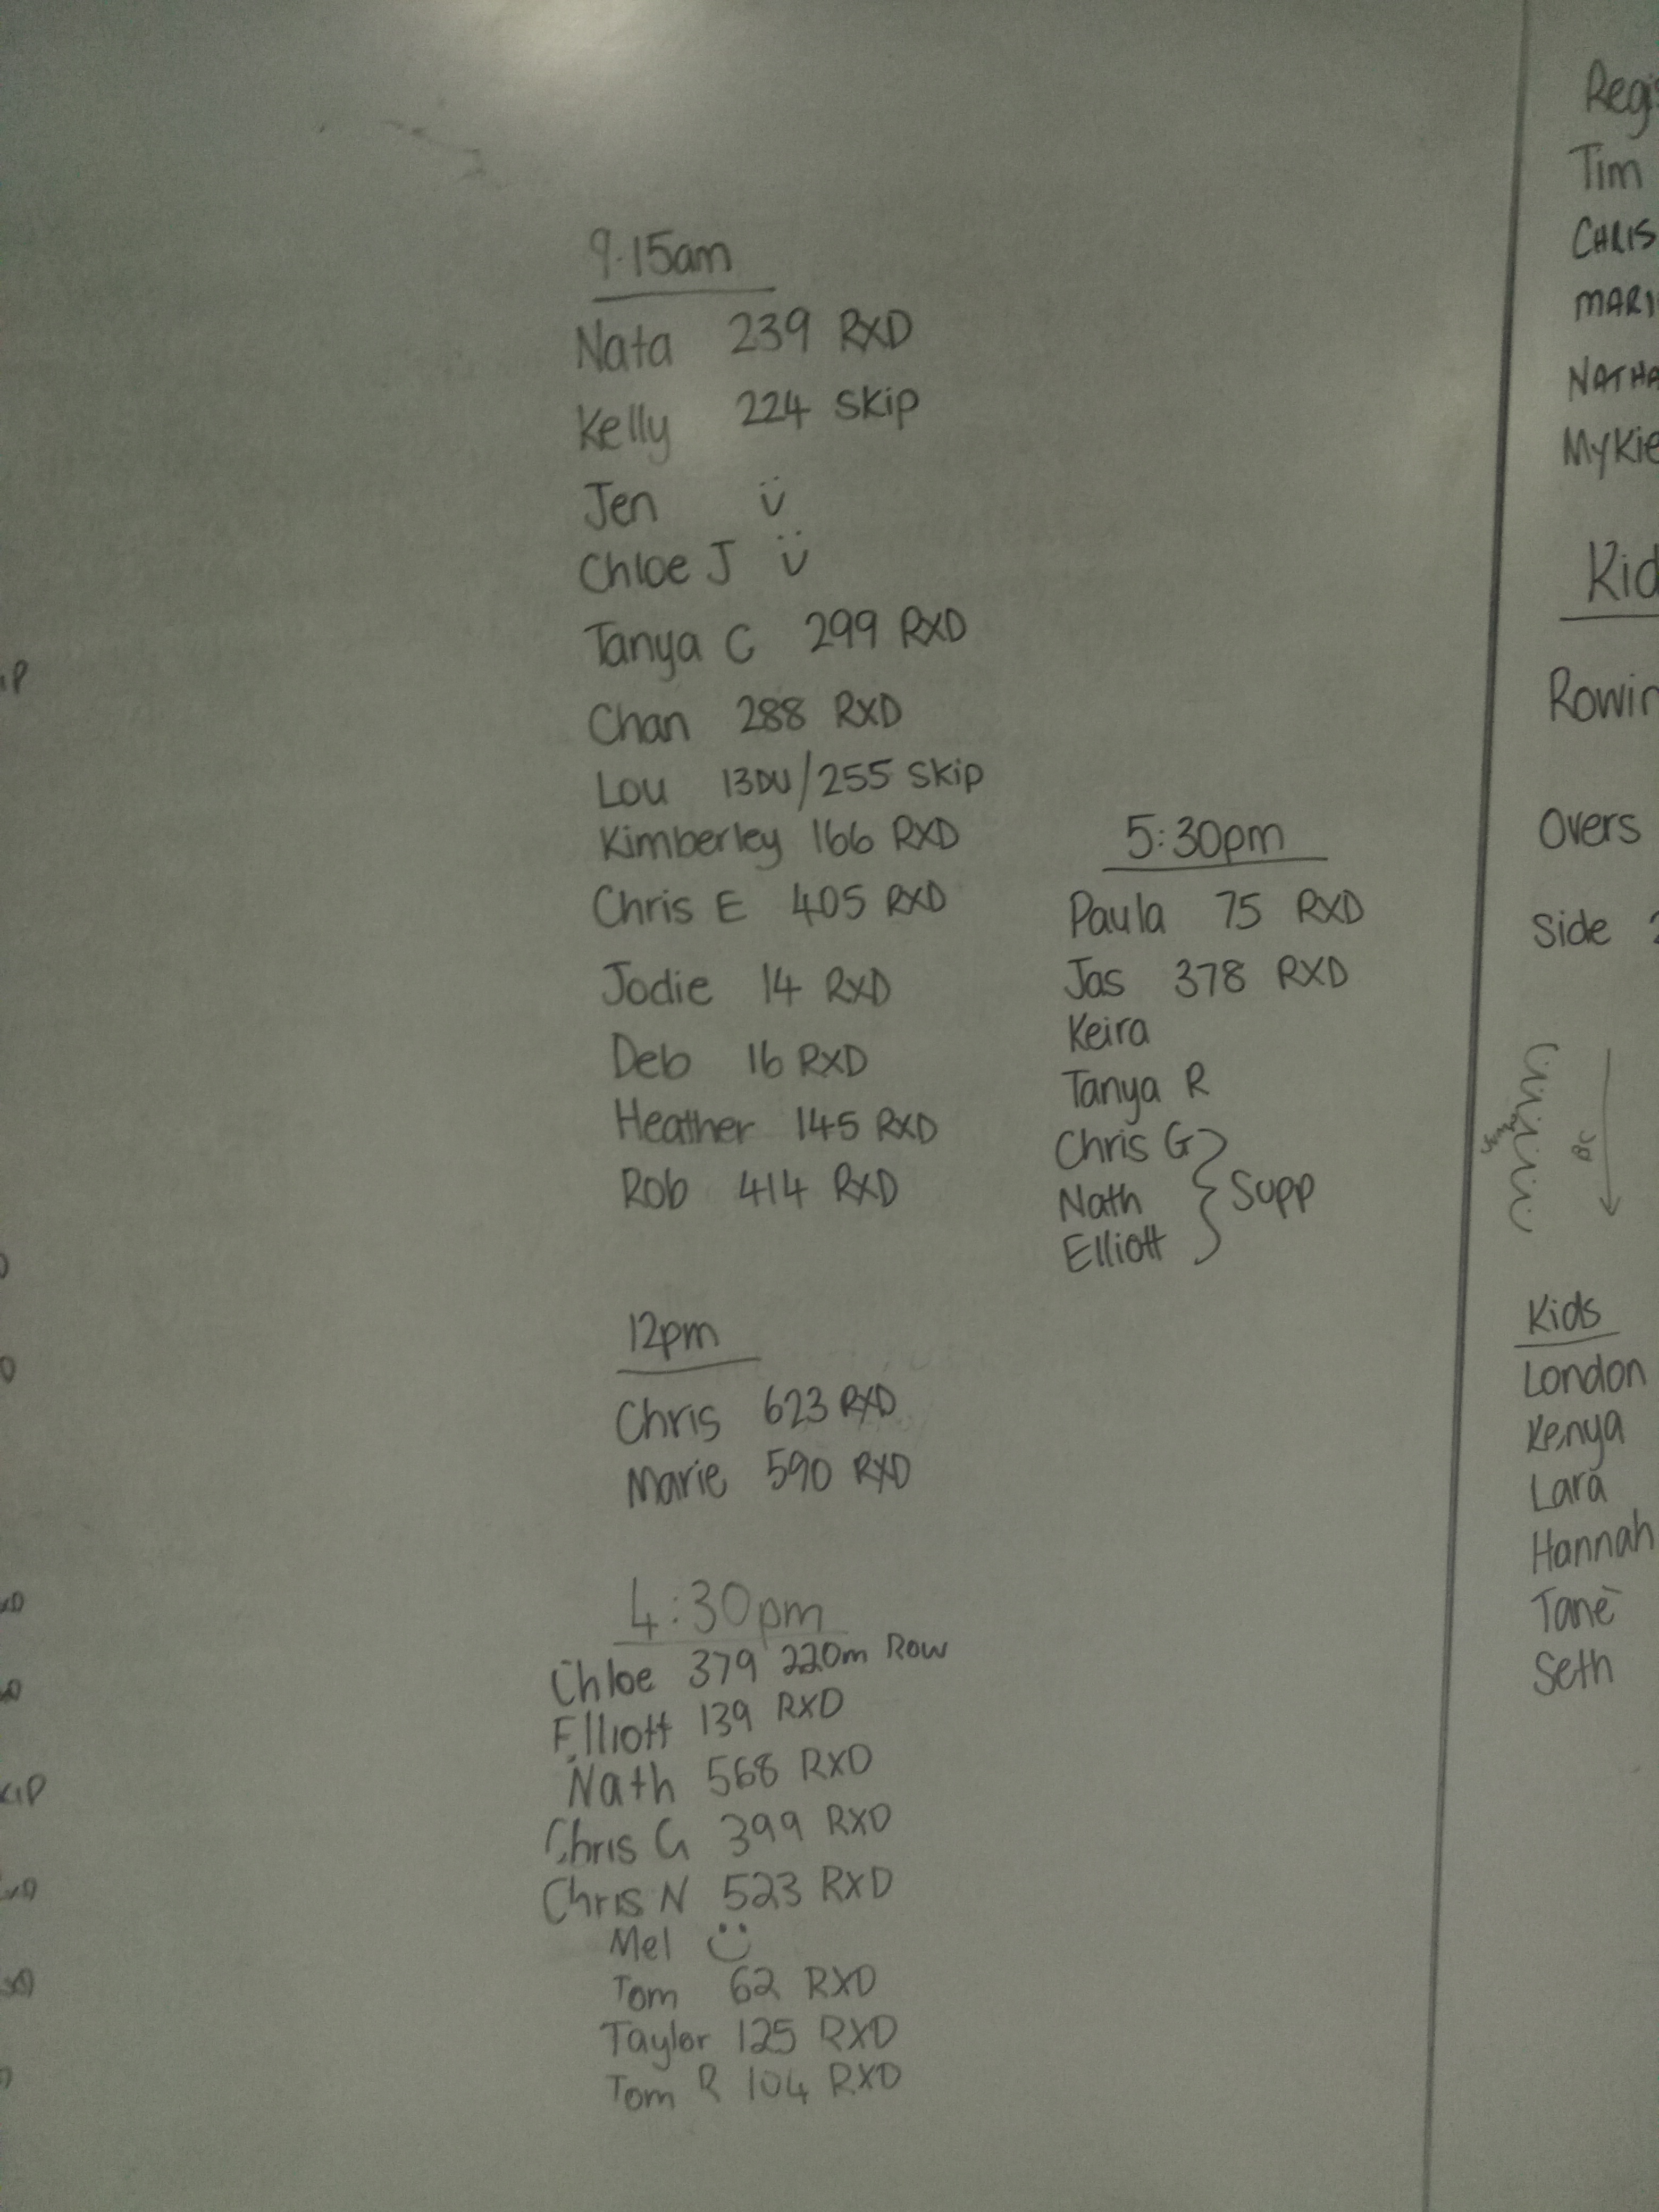 9.15am
Nata 239 RXD
Kelly 224 Skip
Jen
Chloe J
Tanya C 299 RXD
Chan 288 RXD
Lou 13DU/255 Skip
Kimberley 166 RXD
Chris E 405 RXD
Jodie 14 RXD
Deb 16 RXD
Heather 145 RXD
Rob 414 RXD
12pm
Chris 623 RXD
Marie 590 RXD
4:30pm
Chloe 379 220m Row
Elliott 139 RXD
Nath 568 RXD
Chris G 399 RXD
Chris N 523 RXD
Mel
Tom 62 RXD
Taylor 125 RXD
Tom R 104 RXD
5:30pm
Paula 75 RXD
Jas 378 RXD
Keira
Tanya R
Chris G
Nath
Elliott
Supp
Tim
CHRIS
Overs
Side
Kids
London
Kenya
Lara
Hannah
Tanè
Seth